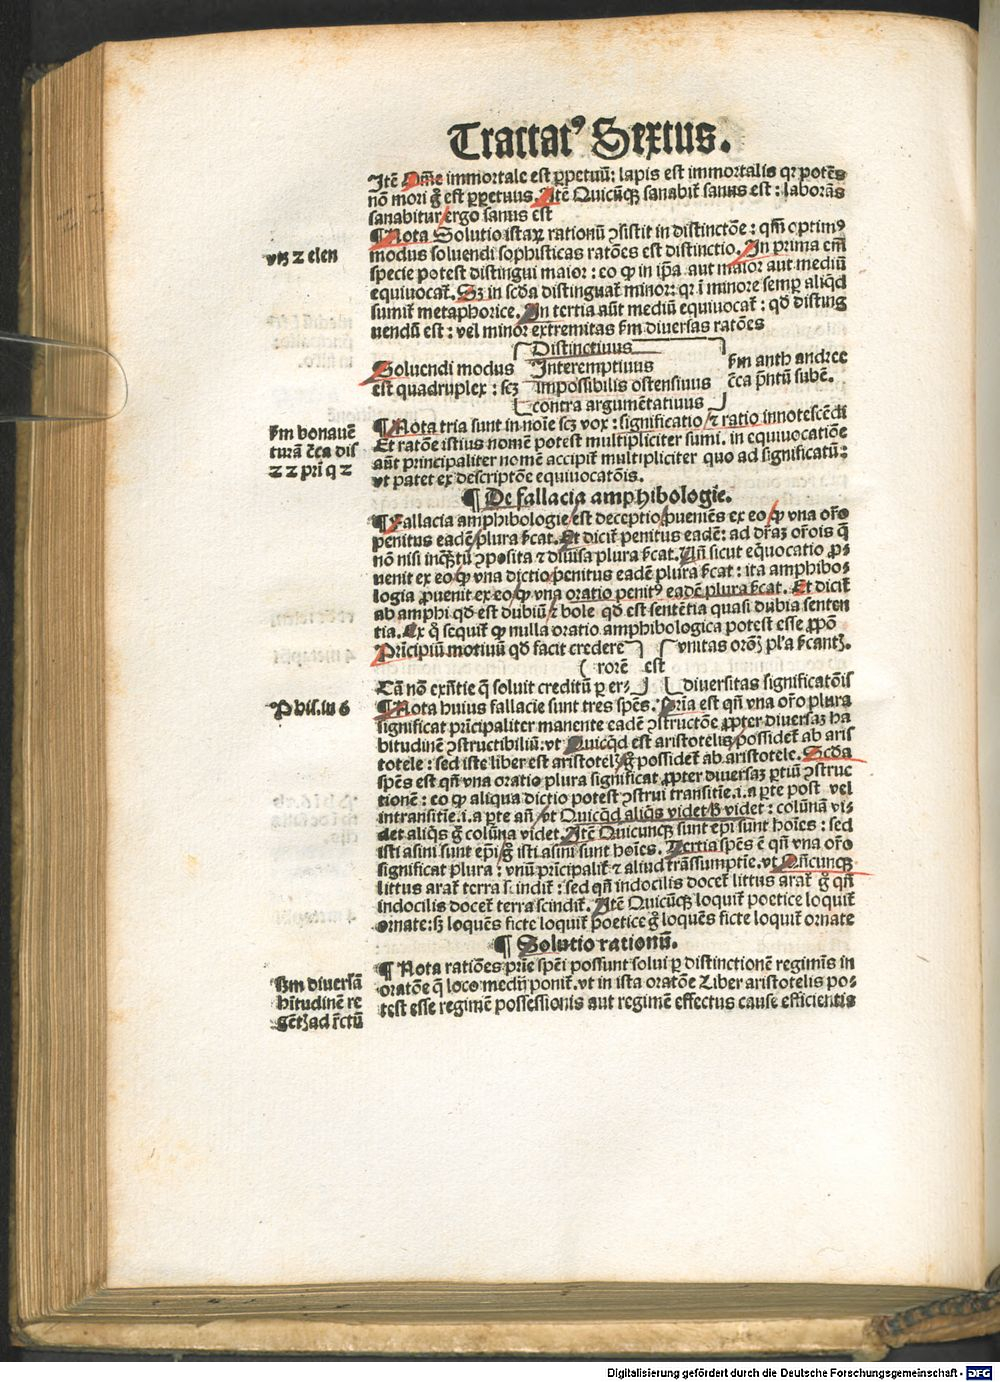 Tractatꝰ Sextus.
Itē Om̄e immortale est ꝑpetuū: lapis est immortalis qꝛ potēs
nō mori g̊ est ꝑpetuus. Itē Quicūqꝫ sanabit̄ sanus est: laborās
sanabitur ergo sanus est
¶ Nota Solutio istaꝝ rationū ꝯsistit in distinctōe: qm̄ optimꝰ
modus soluendi sophisticas ratōes est distinctio. In prima em̄
specie potest distingui maior: eo ꝙ in ip̄a aut maior aut mediū
equiuocat̄. Sꝫ in scḋa distinguat̄ minor: qꝛ ī minore semꝑ aliqd̄
sumit̄ metaphorice. In tertia aūt mediū equiuocat̄: qd̄ disting
uendū est: vel minor extremitas ẜm diuersas ratōes
vtꝫ 2 elen
Distinctiuus
Soluendi modus Interemptiuus ẜm anth andree
est quadruplex: scꝫ impossibilis ostensiuus c̄ca pn̄tū sube.
contra argumētatiuus
¶ Nota tria sunt in noīe scꝫ vox: significatio ⁊ ratio innotescēdi
Et ratōe istius nomē potest multipliciter sumi. in equiuocatiōe
aūt principaliter nomē accipit̄ multipliciter quo ad significatū:
vt patet ex descriptōe equiuocatōis.
ẜm bonauē
turā c̄ca dis
22 pri q 2
¶ De fallacia amphibologie.
¶ Fallacia amphibologie est deceptio ꝓueniēs ex eo ꝙ vna or̄o
penitus eadē plura ſ̄cat. Et dicit̄ penitus eadē: ad dr̄az or̄ois q̄
nō nisi inqꝫtū ꝯposita ⁊ diuisa plura ſ̄cat. Un̄ sicut eq̄uocatio ꝓ-
uenit ex eo ꝙ vna dictio penitus eadē plura ſ̄cat: ita amphibo-
logia ꝓuenit ex eo ꝙ vna oratio penitꝰ eadē plura ſ̄cat. Et dicit̄
ab amphi qd̄ est dubiū ⁊ bole qd̄ est sentētia quasi dubia senten
tia. Ex q̊ sequit̄ ꝙ nulla oratio amphibologica potest esse ꝓpō
Prīcipiū motiuū qd̄ facit credere vnitas orōꝫ pl'a ſ̄cantꝫ.
rorē est
Cā nō exn̄tie q̄ soluit creditū ꝑ er- diuersitas significatōis
¶ Nota huius fallacie sunt tres spēs. Pria est qn̄ vna or̄o plura
significat prīcipaliter manente eadē ꝯstructōe ꝓpter diuersaz ha
bitudinē ꝯstructibiliū. vt Quicqd̄ est aristotelis possidet̄ ab aris
totele: sed iste liber est aristotelꝭ g̊ possidet̄ ab aristotele. Scḋa
spēs est qn̄ vna oratio plura significat ꝓpter diuersaꝫ ꝑtiū ꝯstruc
tionē: eo ꝙ aliqua dictio potest ꝯstrui transitīe. i. a ꝑte post vel
intransitīe. i. a ꝑte an̄ vt Quicqd̄ aliq̄s videt ẜ videt: colūnā vi-
det aliq̄s g̊ colūna videt. Itē Quicunqꝫ sunt ep̄i sunt hoīes: sed
isti asini sunt ep̄i g̊ isti asini sunt hoīes. Tertia spēs ē qn̄ vna or̄o
significat plura: vnū prīcipalit̄ ⁊ aliud trāssumptīe. vt Qn̄cunqꝫ
littus arat̄ terra scindit̄: sed qn̄ indocilis docet̄ littus arat̄ g̊ qn̄
indocilis docet̄ terra scindit̄. Itē Quicūqꝫ loquit̄ poetice loquit̄
ornate: sꝫ loquēs ficte loquit̄ poetice g̊ loquēs ficte loquit̄ ornate
P bis. in 6
¶ Solutio rationū.
¶ Nota ratiōes prīe spēi possunt solui ꝑ distinctionē regimīs in
oratōe q̄ loco medij ponit̄. vt in ista oratōe Liber aristotelis po-
test esse regimē possessionis aut regimē effectus cause efficientis
ẜm diuersā
hītudinē re
gētꝭ ad rc̄tū
Digitalisierung gefördert durch die Deutsche Forschungsgemeinschaft - DFG